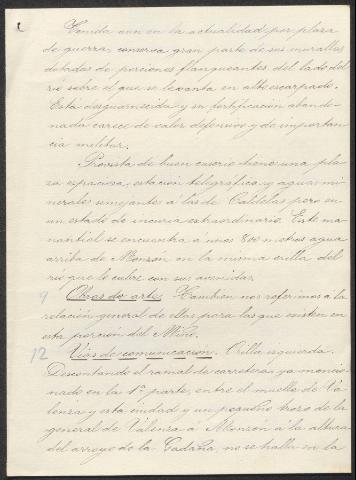 Tenida aun en la actualidad por plaza
de guerra, conserva gran parte de sus murallas
dotadas de porciones flanqueantes del lado del
rio sobre el que se levanta en alto escarpado.
Está desguarnecida y su fortificación abando-
nada carece de valor defensivo y de importan-
cia militar.
Provista de buen caserio tiene una pla-
za espaciosa, estación telegráfica y aguas mi-
nerales semejantes á las de Caldelas pero en
un estado de incuria extraordinario. Este ma-
nantial se encuentra á unos 800 metros agua
arriba de Monzón en la misma orilla del
rio que le cubre con sus avenidas.
9 Obras de arte. Tambien nos referimos á la
relación general de ellas para las que existen en
esta porción del Miño.
12 Vias de comunicación. Orilla izquierda.
Descontando el ramal de carretera, ya mencio-
nado en la 1ª parte, entre el muelle de Va-
lenza y esta ciudad y un pequeño trozo de la
general de Valenza á Monzón á la altura
del arroyo de la Gadaña, no se halla en la